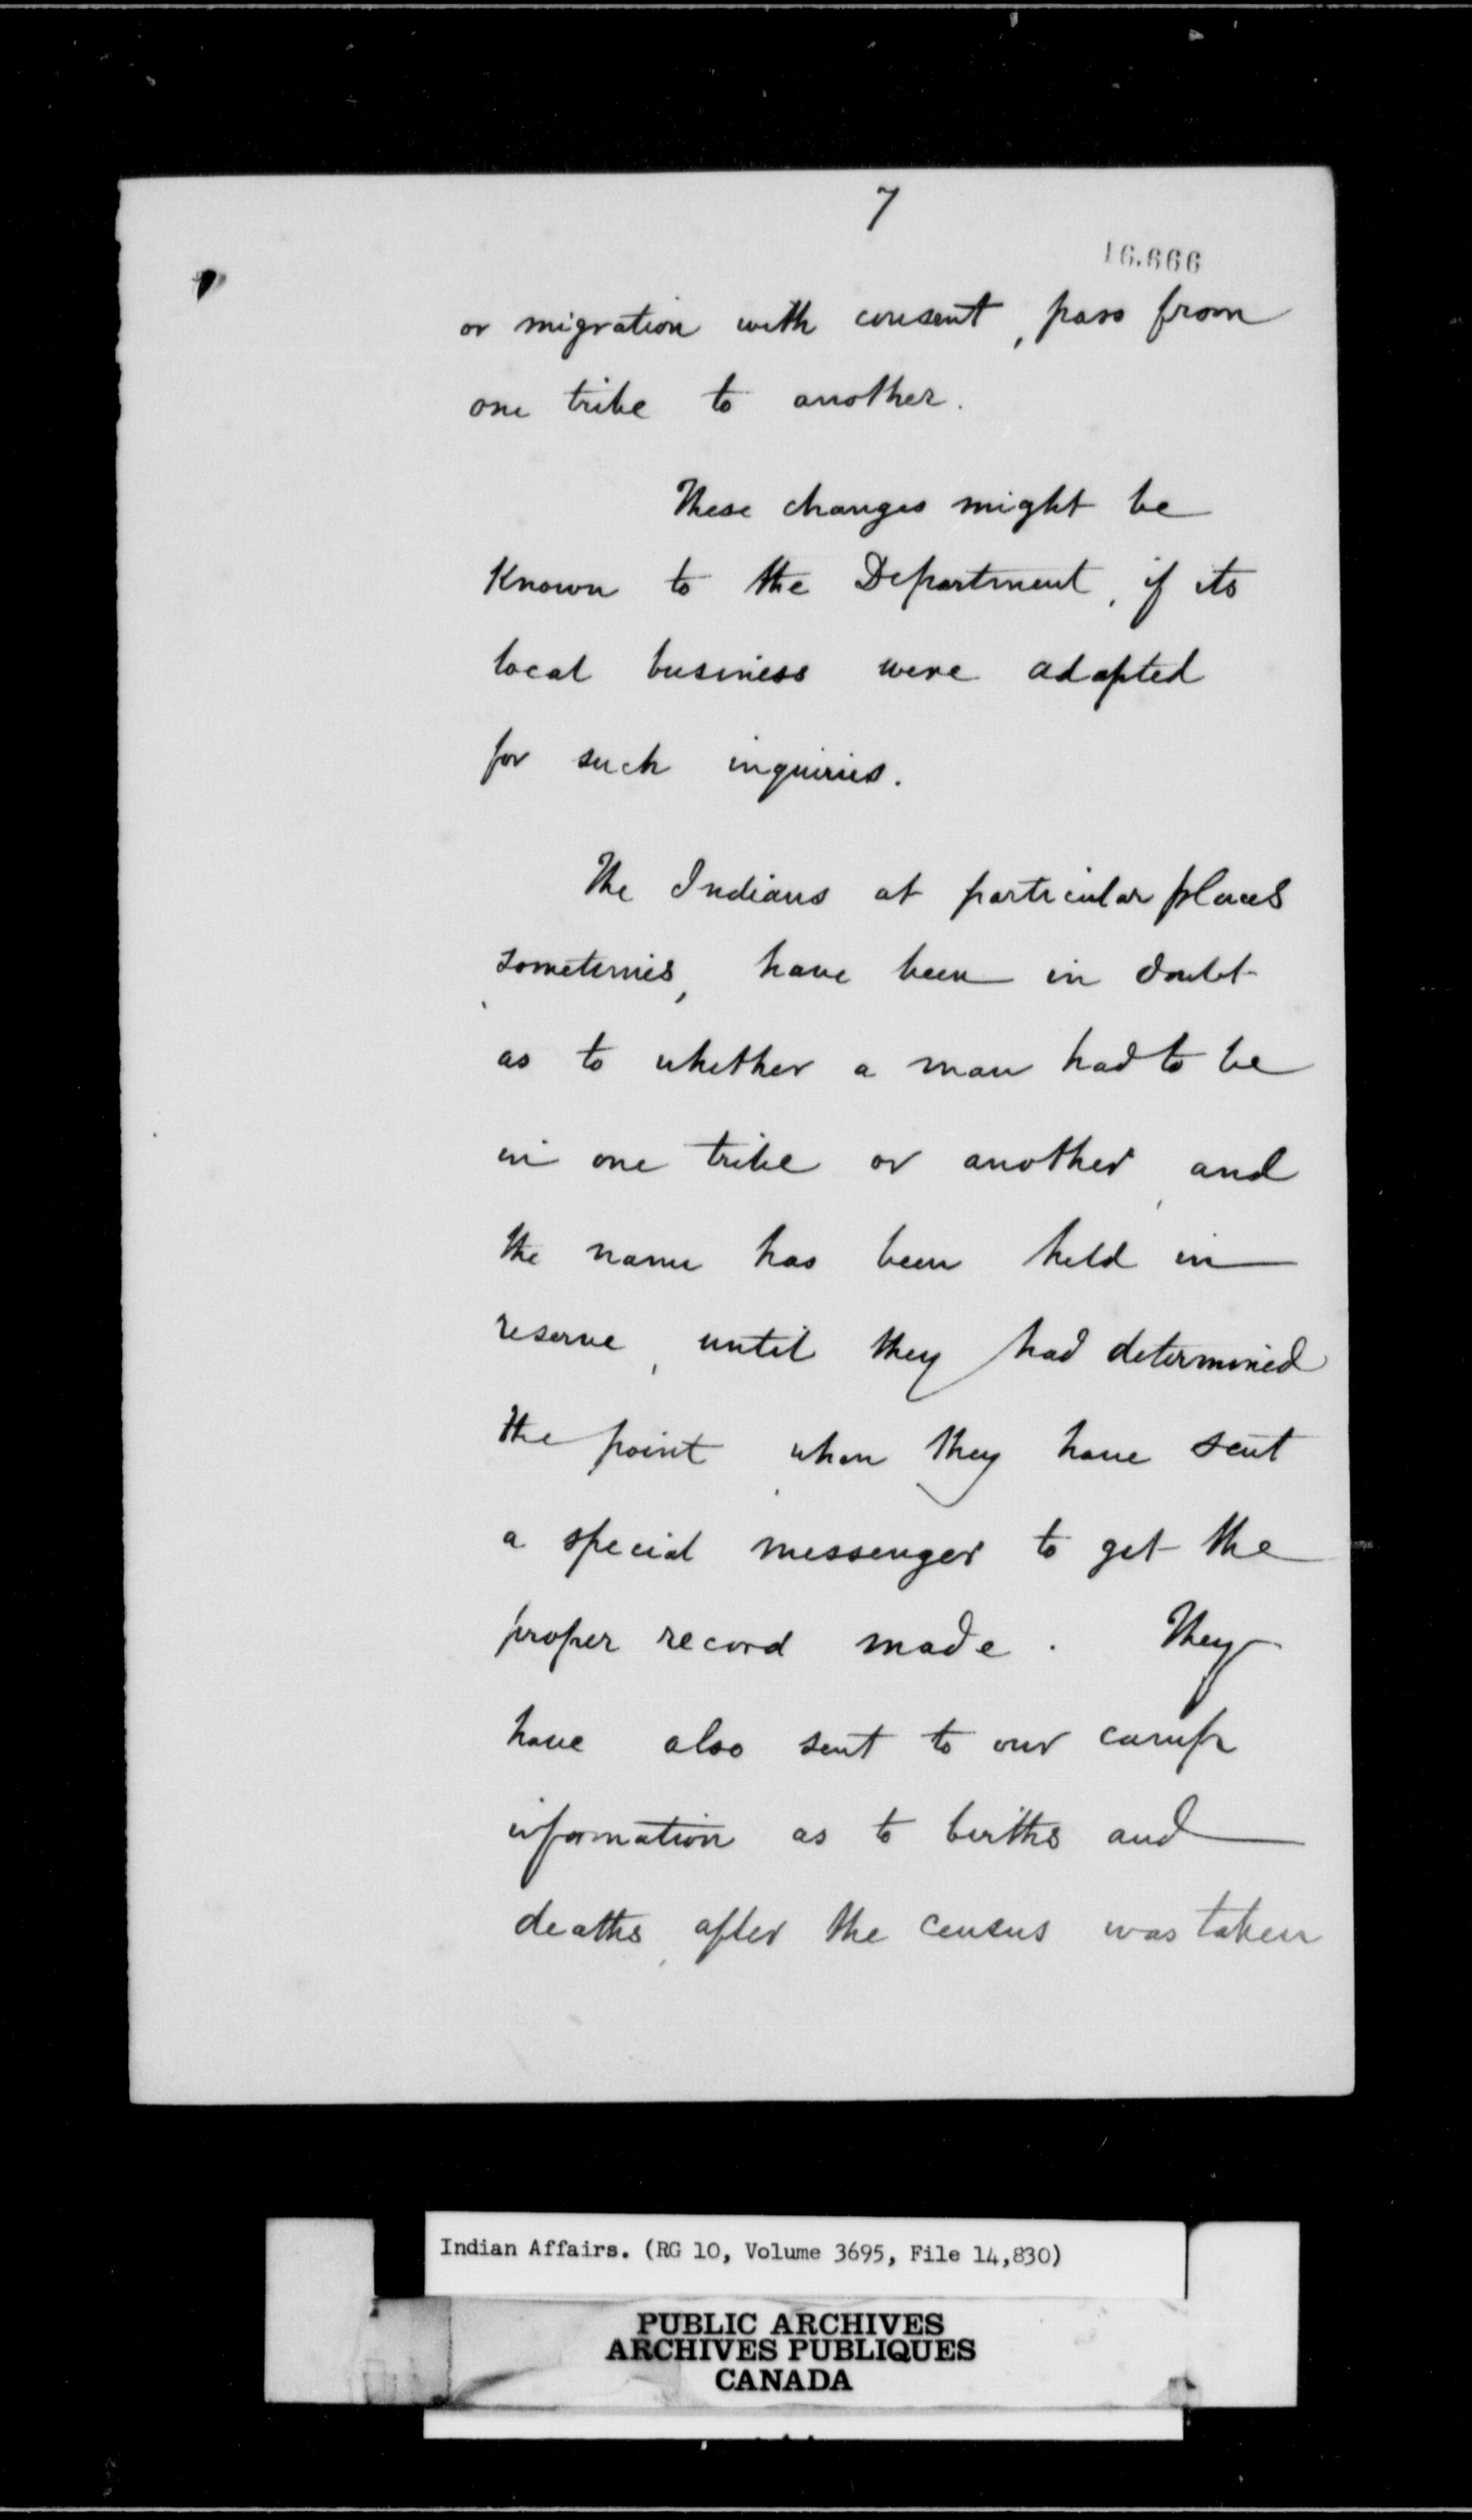 7
16.666
or migration with consent, pass from
one tribe to another.
These changes might be
Known to the Department, if its
local business were adapted
for such inquiries.
The Indians at particular places
sometimes, have been in doubt
as to whether a man had to be
in one tribe or another, and
the name has been held in
reserve, until they had determined
the point, when they have sent
a special messenger to get the
proper record made. They
have also sent to our camp
information as to births and
deaths, after the census was taken
Indian Affairs. (RG 10, Volume 3695, File 14,830)
PUBLIC ARCHIVES
ARCHIVES PUBLIQUES
CANADA